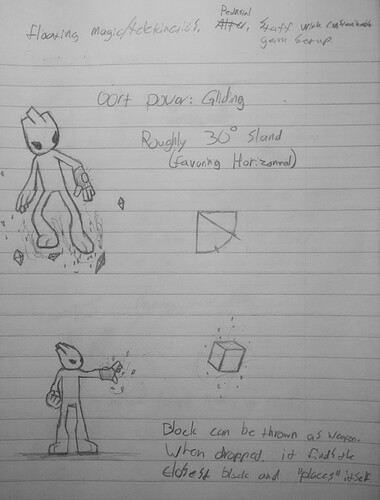 floating magic/telekinetics.
Potential
Alter, Staff with customizable
gem setup
Oort power: Gliding
Roughly 30° Sland
(favoring Horizontal)
Block can be thrown as weapon.
When dropped, it finds the
Closest block and "places" itself